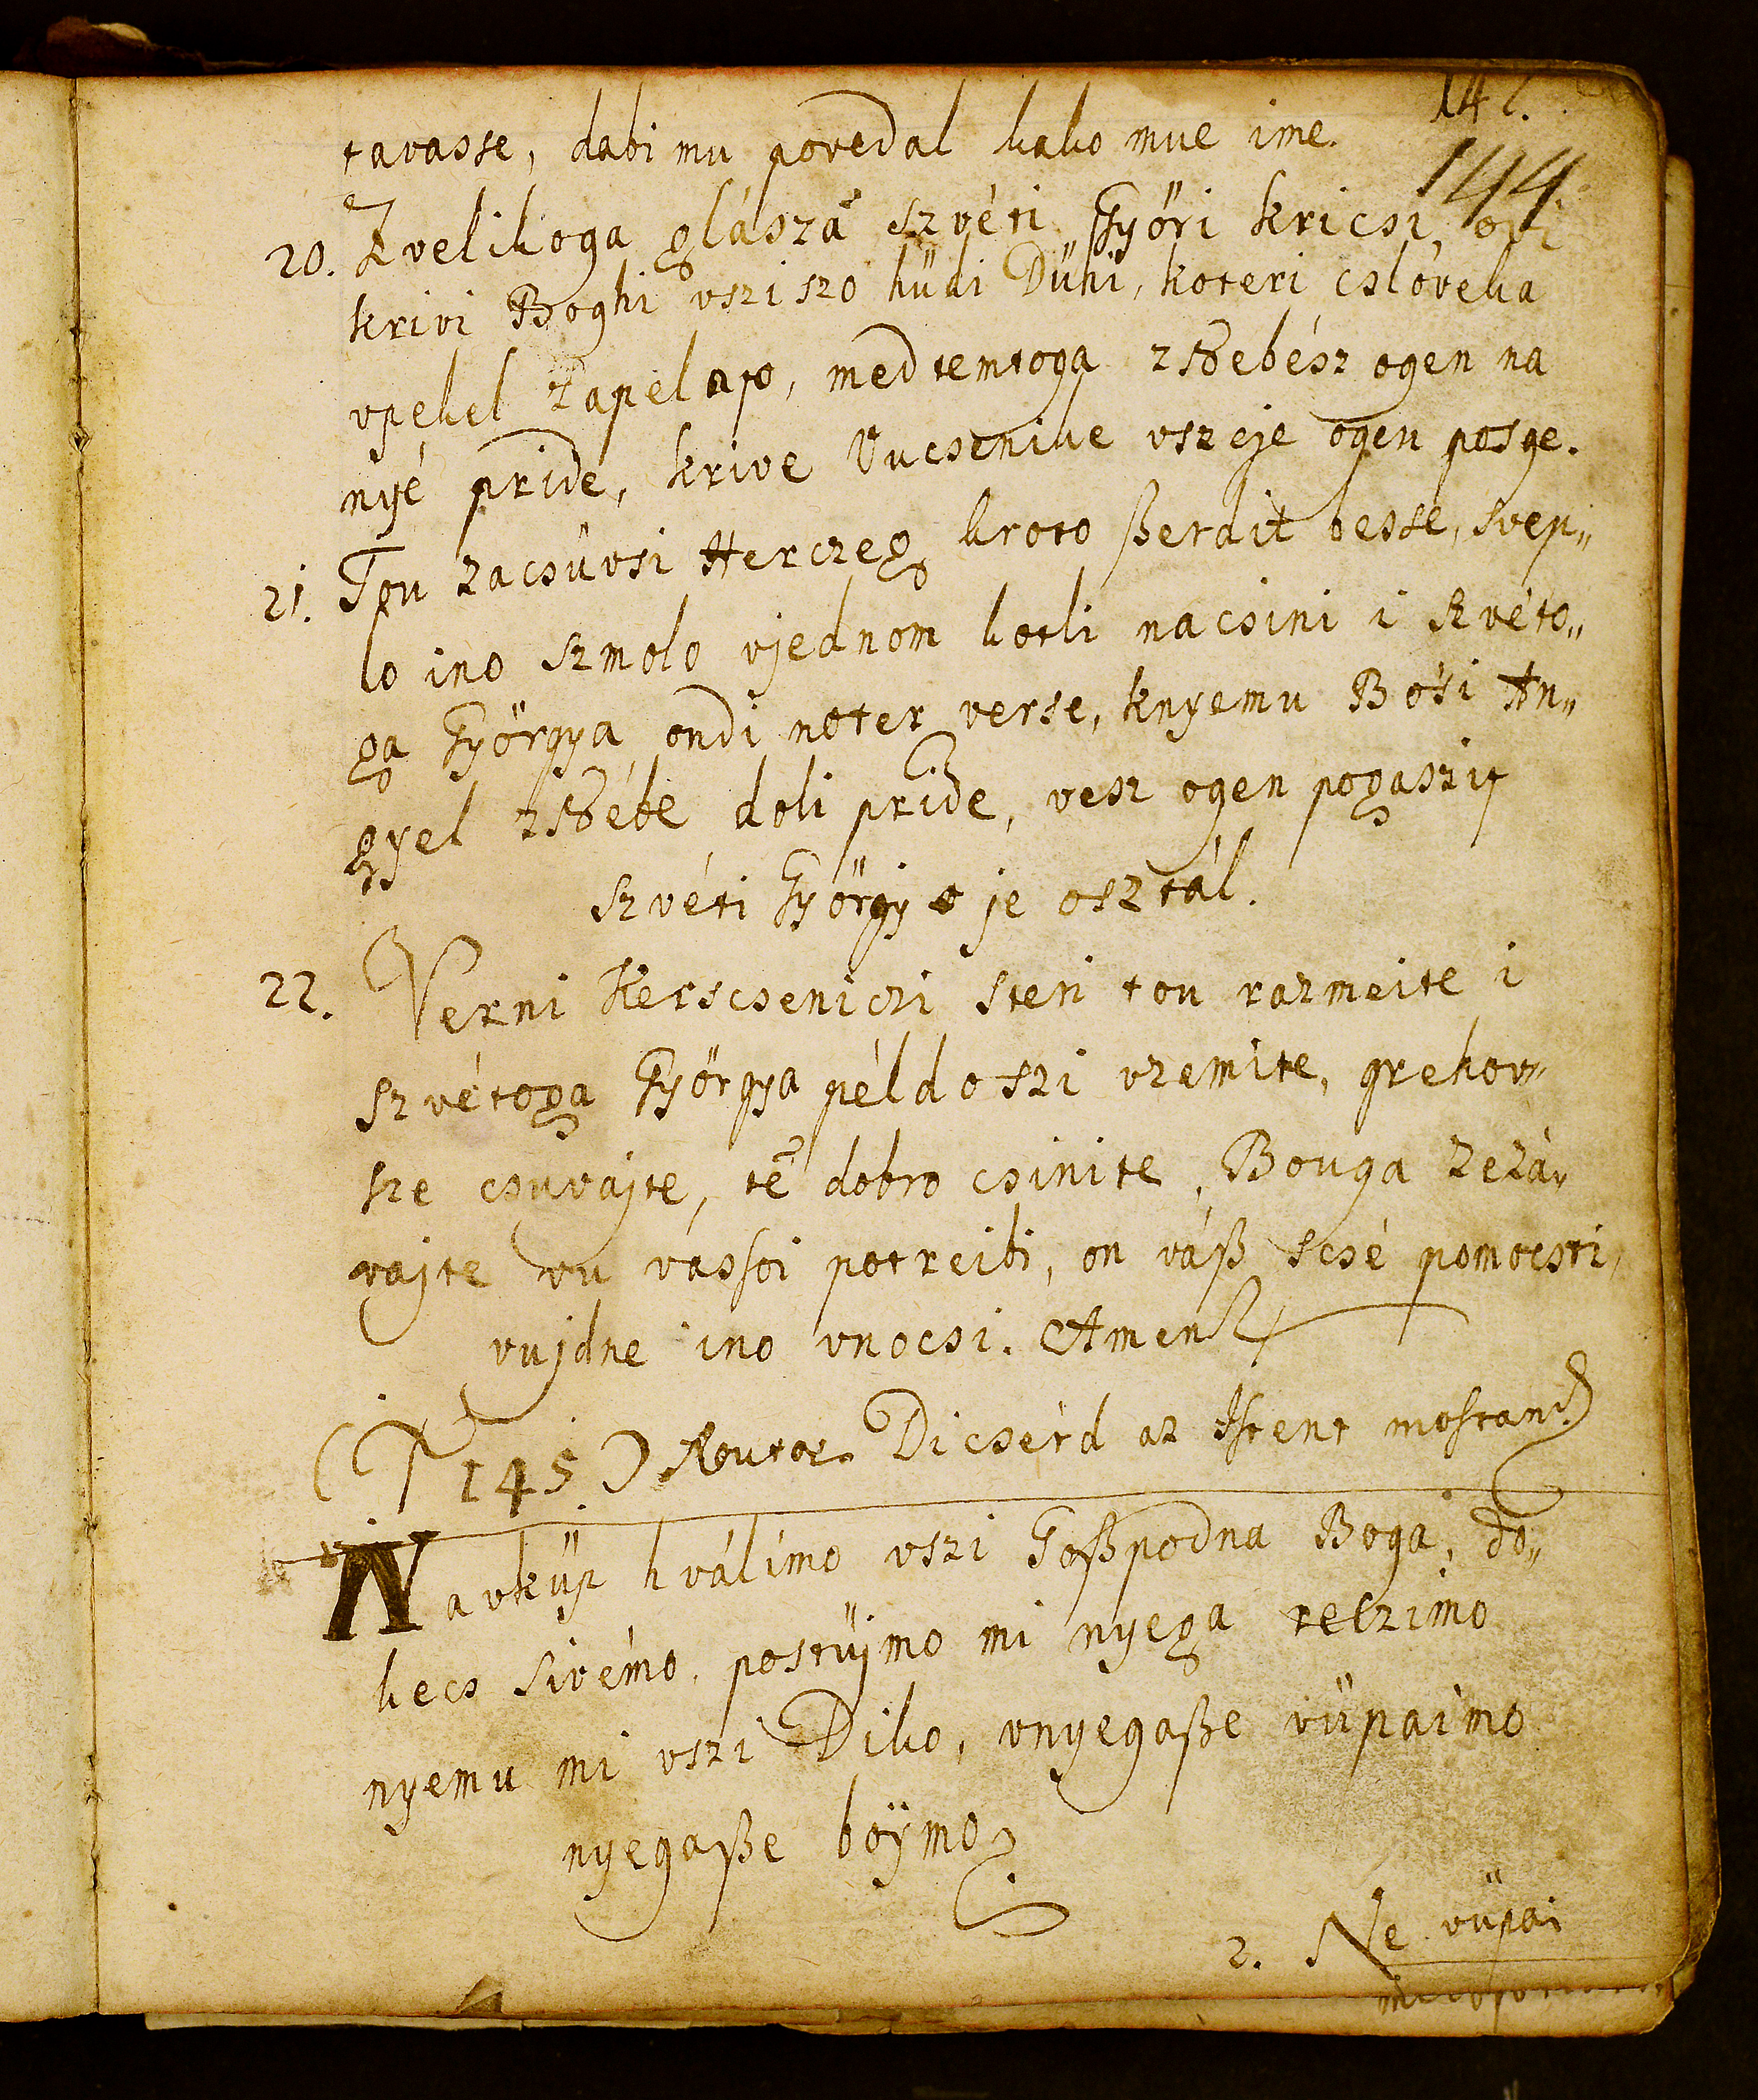 142.
tavasse, dabi mu povedal kako mue ime.
144.
20. Z velikoga glászá szvéti Györi kricsi, ovi
krivi Boghi vszi szo hüdi Dühi, koteri cslöveka
vpekel zapelajo, med temtoga znebész ogen na
nyé pride, krive Vucsenike vszeje ogen posge.
21. Tou zacsüvsi Herczeg kroto ßerdit besse, svep„
lo ino szmolo vjednom kotli nacsini i szvéto„
ga Györgya ondi noter verse, knyemu Bosi An„
gyel znébe doli pride, vesz ogen pogaszi
szvéti György je osztál.
22. Verni Kerscseniczi steri tou razmeite i
szvétoga Györgya példo szi vzemite, grehov„
sze csuvajte, te dobro csinite, Bouga zezá„
vajte vu vassoi potreibi, on váß scsé pomocsti,
vujdne ino vnocsi. Amen
(145.) Noutor. Dicsérd az Istent mostan
Navküp hválimo vszi Goßpodna Boga, do„
kecs sivémo, postüjmo mi nyega reczimo
nyemu mi vszi Diko, vnyegaße vüpaimo
nyegaße boÿmo
2. Ne vüpai